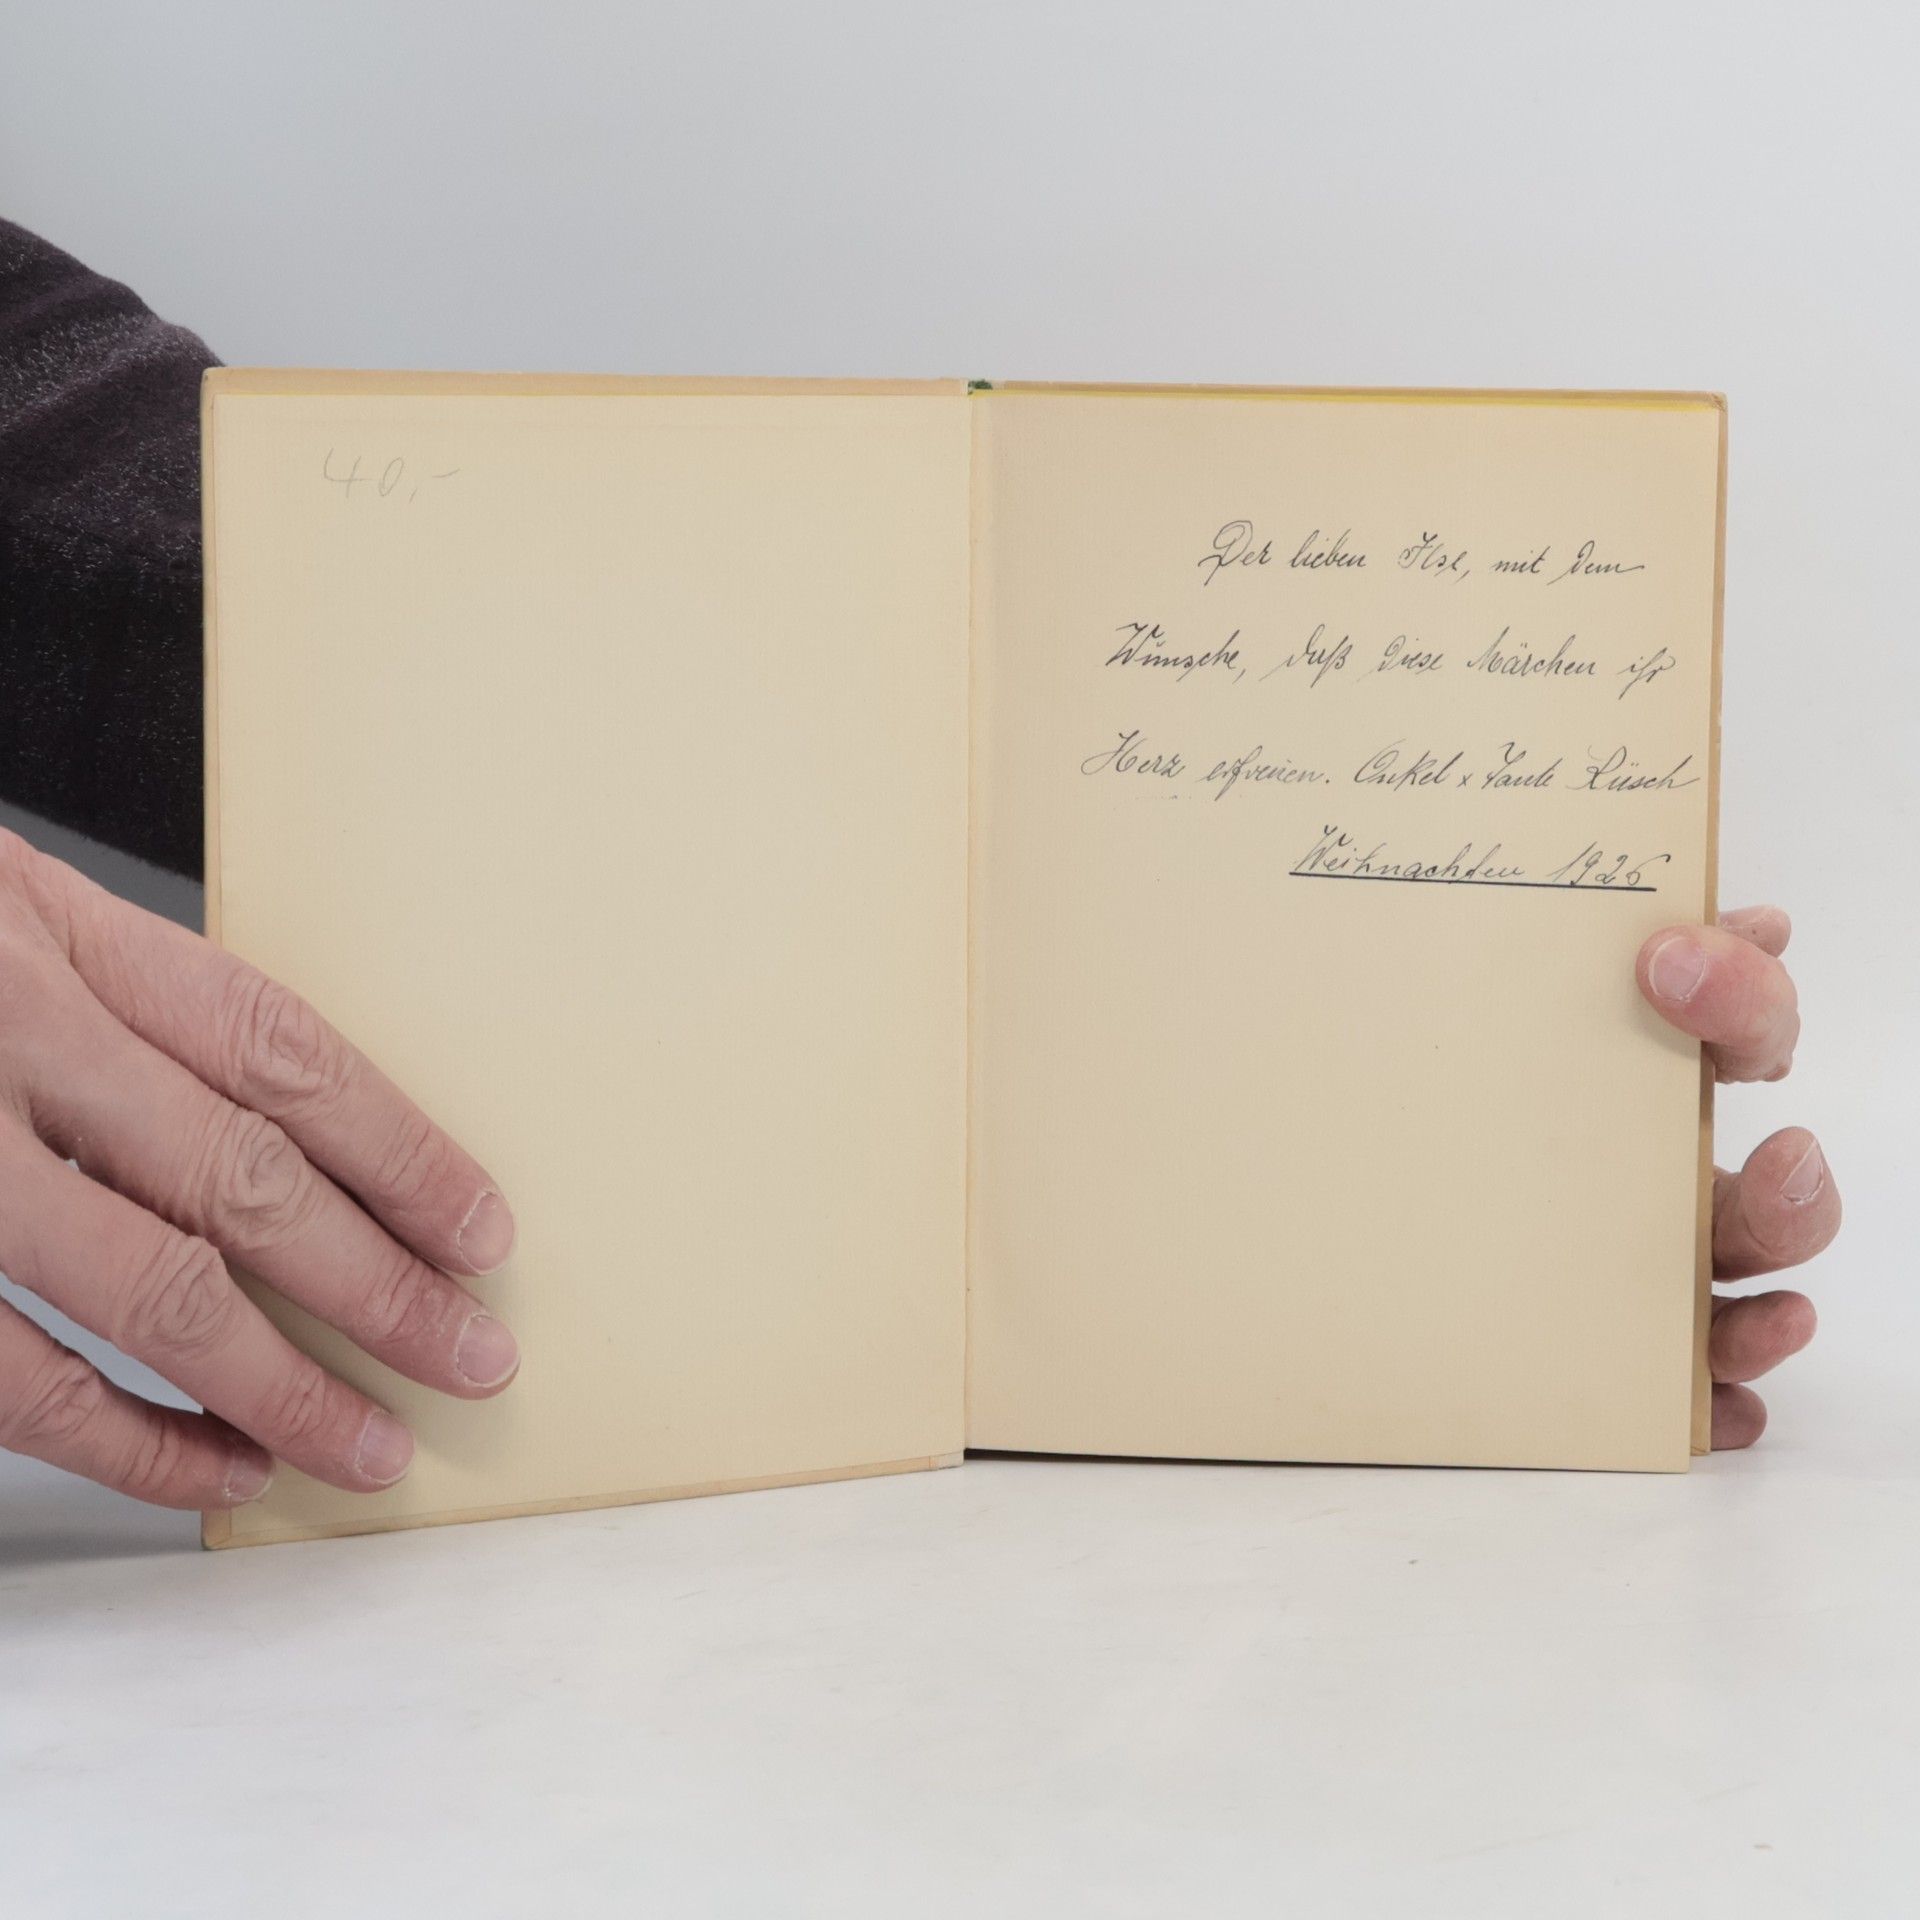 40,-
Der lieben Ilse, mit dem
Wunsche, daß diese Märchen ihr
Herz erfreuen. Onkel x Tante Rüsch
Weihnachten 1926